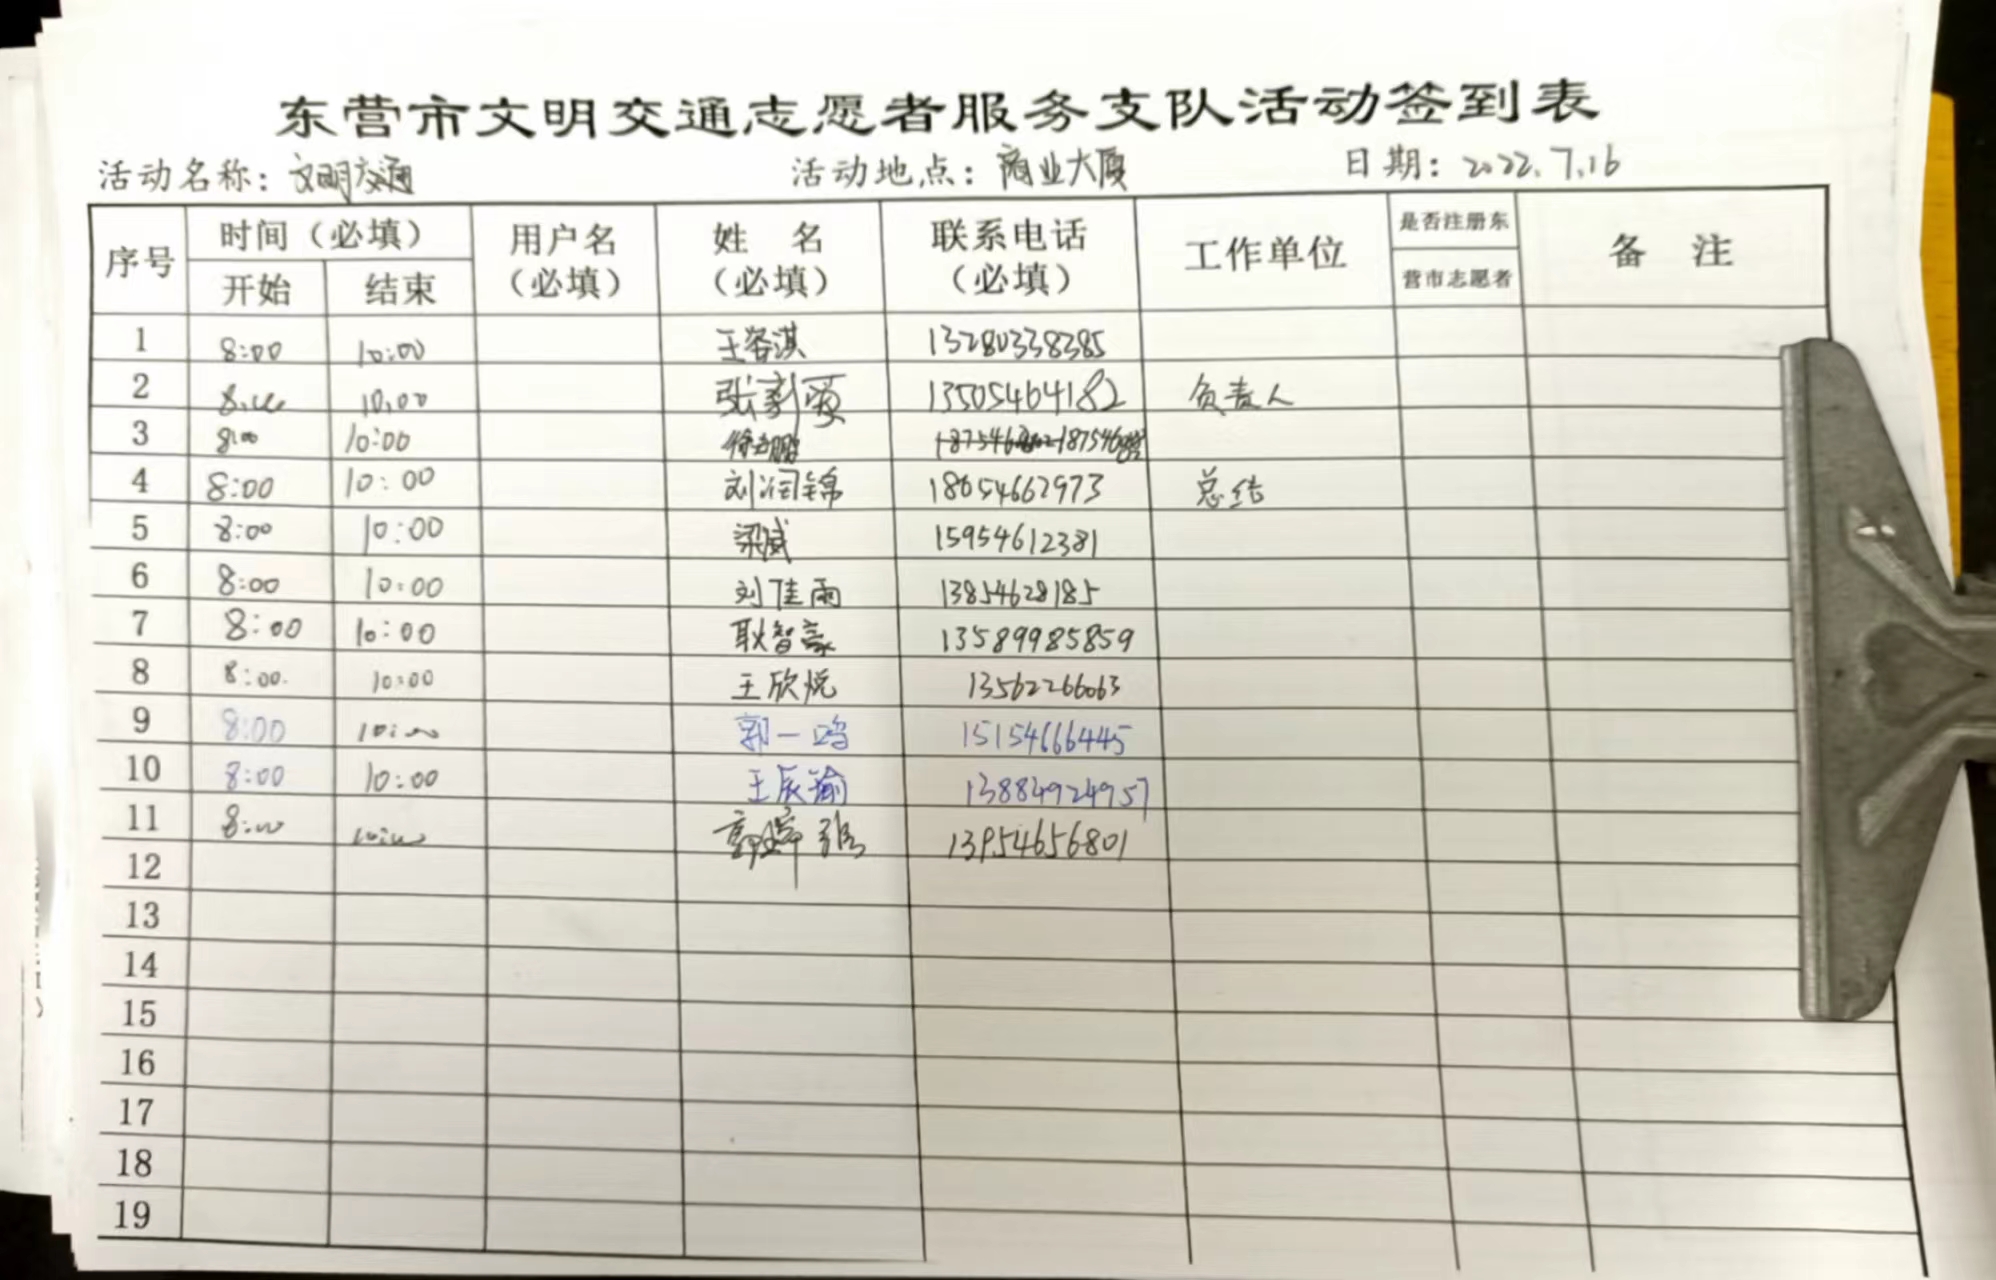 东营市文明交通志愿者服务支队活动签到表
活动名称：文明交通 活动地点：商业大厦 日期：2022.7.16
序号 时间（必填） 用户名（必填） 姓 名（必填） 联系电话（必填） 工作单位 是否注册东营市志愿者 备 注
开始 结束
1 8:00 10:00 王容淇 13280338385
2 8:00 10:00 13505464182 负责人
3 8:00 10:00
4 8:00 10:00 刘润锦 18654662973 总结
5 8:00 10:00 梁威 15954612381
6 8:00 10:00 刘佳雨 13854628185
7 8:00 10:00 耿智豪 13589985859
8 8:00 10:00 王欣悦 13562266063
9 8:00 10:00 郭一鸣 15154666445
10 8:00 10:00 王辰瑜 13884924957
11 8:00 10:00 13954656801
12
13
14
15
16
17
18
19